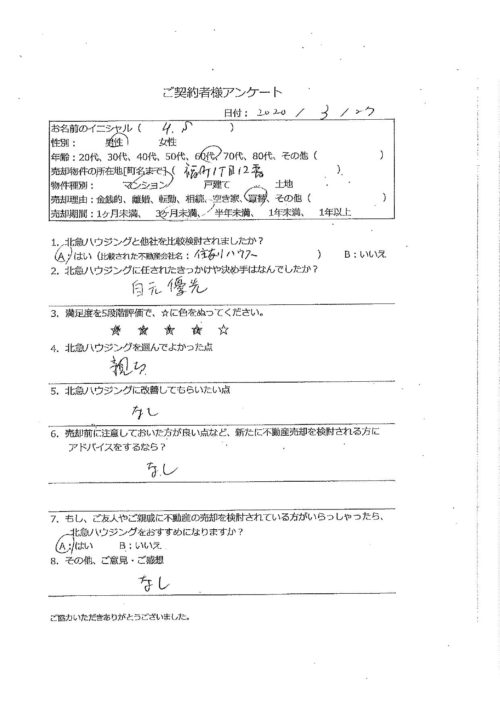 ご契約者様アンケート
日付: 2020 / 3 / 27
お名前のイニシャル ( )
性別: 男性 女性
年齢:20代、30代、40代、50代、60代、70代、80代、その他 ( )
売却物件の所在地[町名まで] ( 1丁目12番 )
物件種別: マンション 戸建て 土地
売却理由:金銭的、離婚、転勤、相続、空き家、買替、その他 ( )
売却期間:1ヶ月未満、 3ヶ月未満、 半年未満、 1年未満、 1年以上
1. 北急ハウジングと他社を比較検討されましたか?
A:はい (比較された不動産会社名: ) B:いいえ
2. 北急ハウジングに任されたきっかけや決め手はなんでしたか?
地元優先
3. 満足度を5段階評価で、☆に色をぬってください。
★ ★ ★ ★ ☆
4. 北急ハウジングを選んでよかった点
親切
5. 北急ハウジングに改善してもらいたい点
なし
6. 売却前に注意しておいた方が良い点など、新たに不動産売却を検討される方に
アドバイスをするなら?
なし
7. もし、ご友人やご親戚に不動産の売却を検討されている方がいらっしゃったら、
北急ハウジングをおすすめになりますか?
A:はい B:いいえ
8. その他、ご意見・ご感想
なし
ご協力いただきありがとうございました。